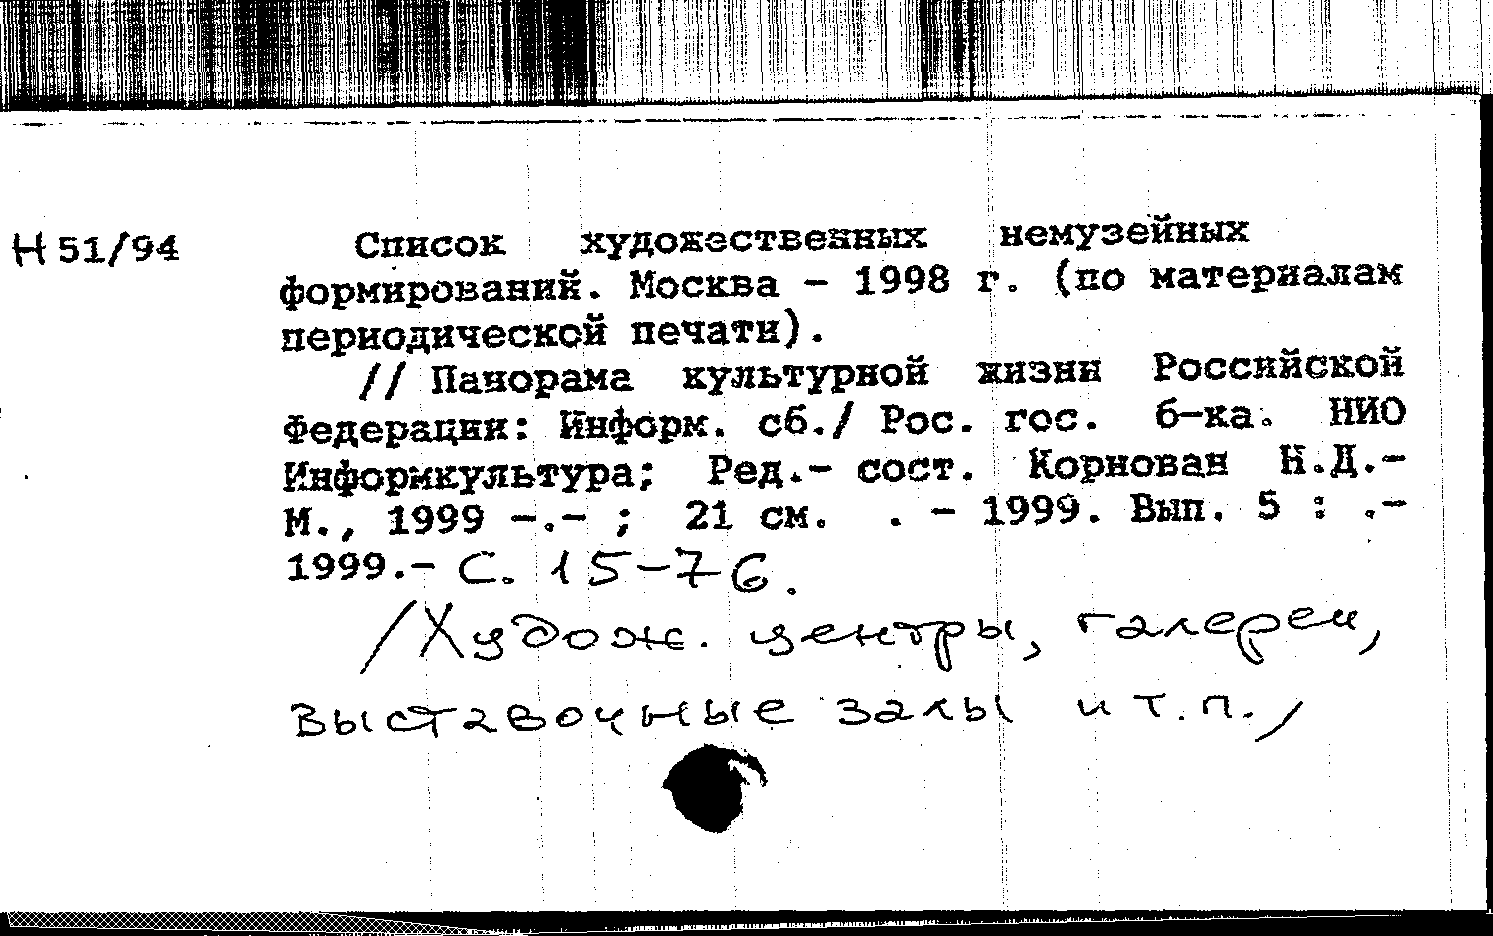 Н 51/94 Список художественных немузейных
формирований. Москва - 1998 г. (по материалам
периодической печати).
// Панорама культурной жизни Российской
Федерации: Информ. сб./ Рос. гос. б-ка. НИО
Информкультура; Ред.- сост. Корнован Н.Д.-
М., 1999 -.- ; 21 см. . - 1999. Вып. 5 : .-
1999.- С. 15-76.
/Худож. центры, галереи,
выставочные залы и т.п./